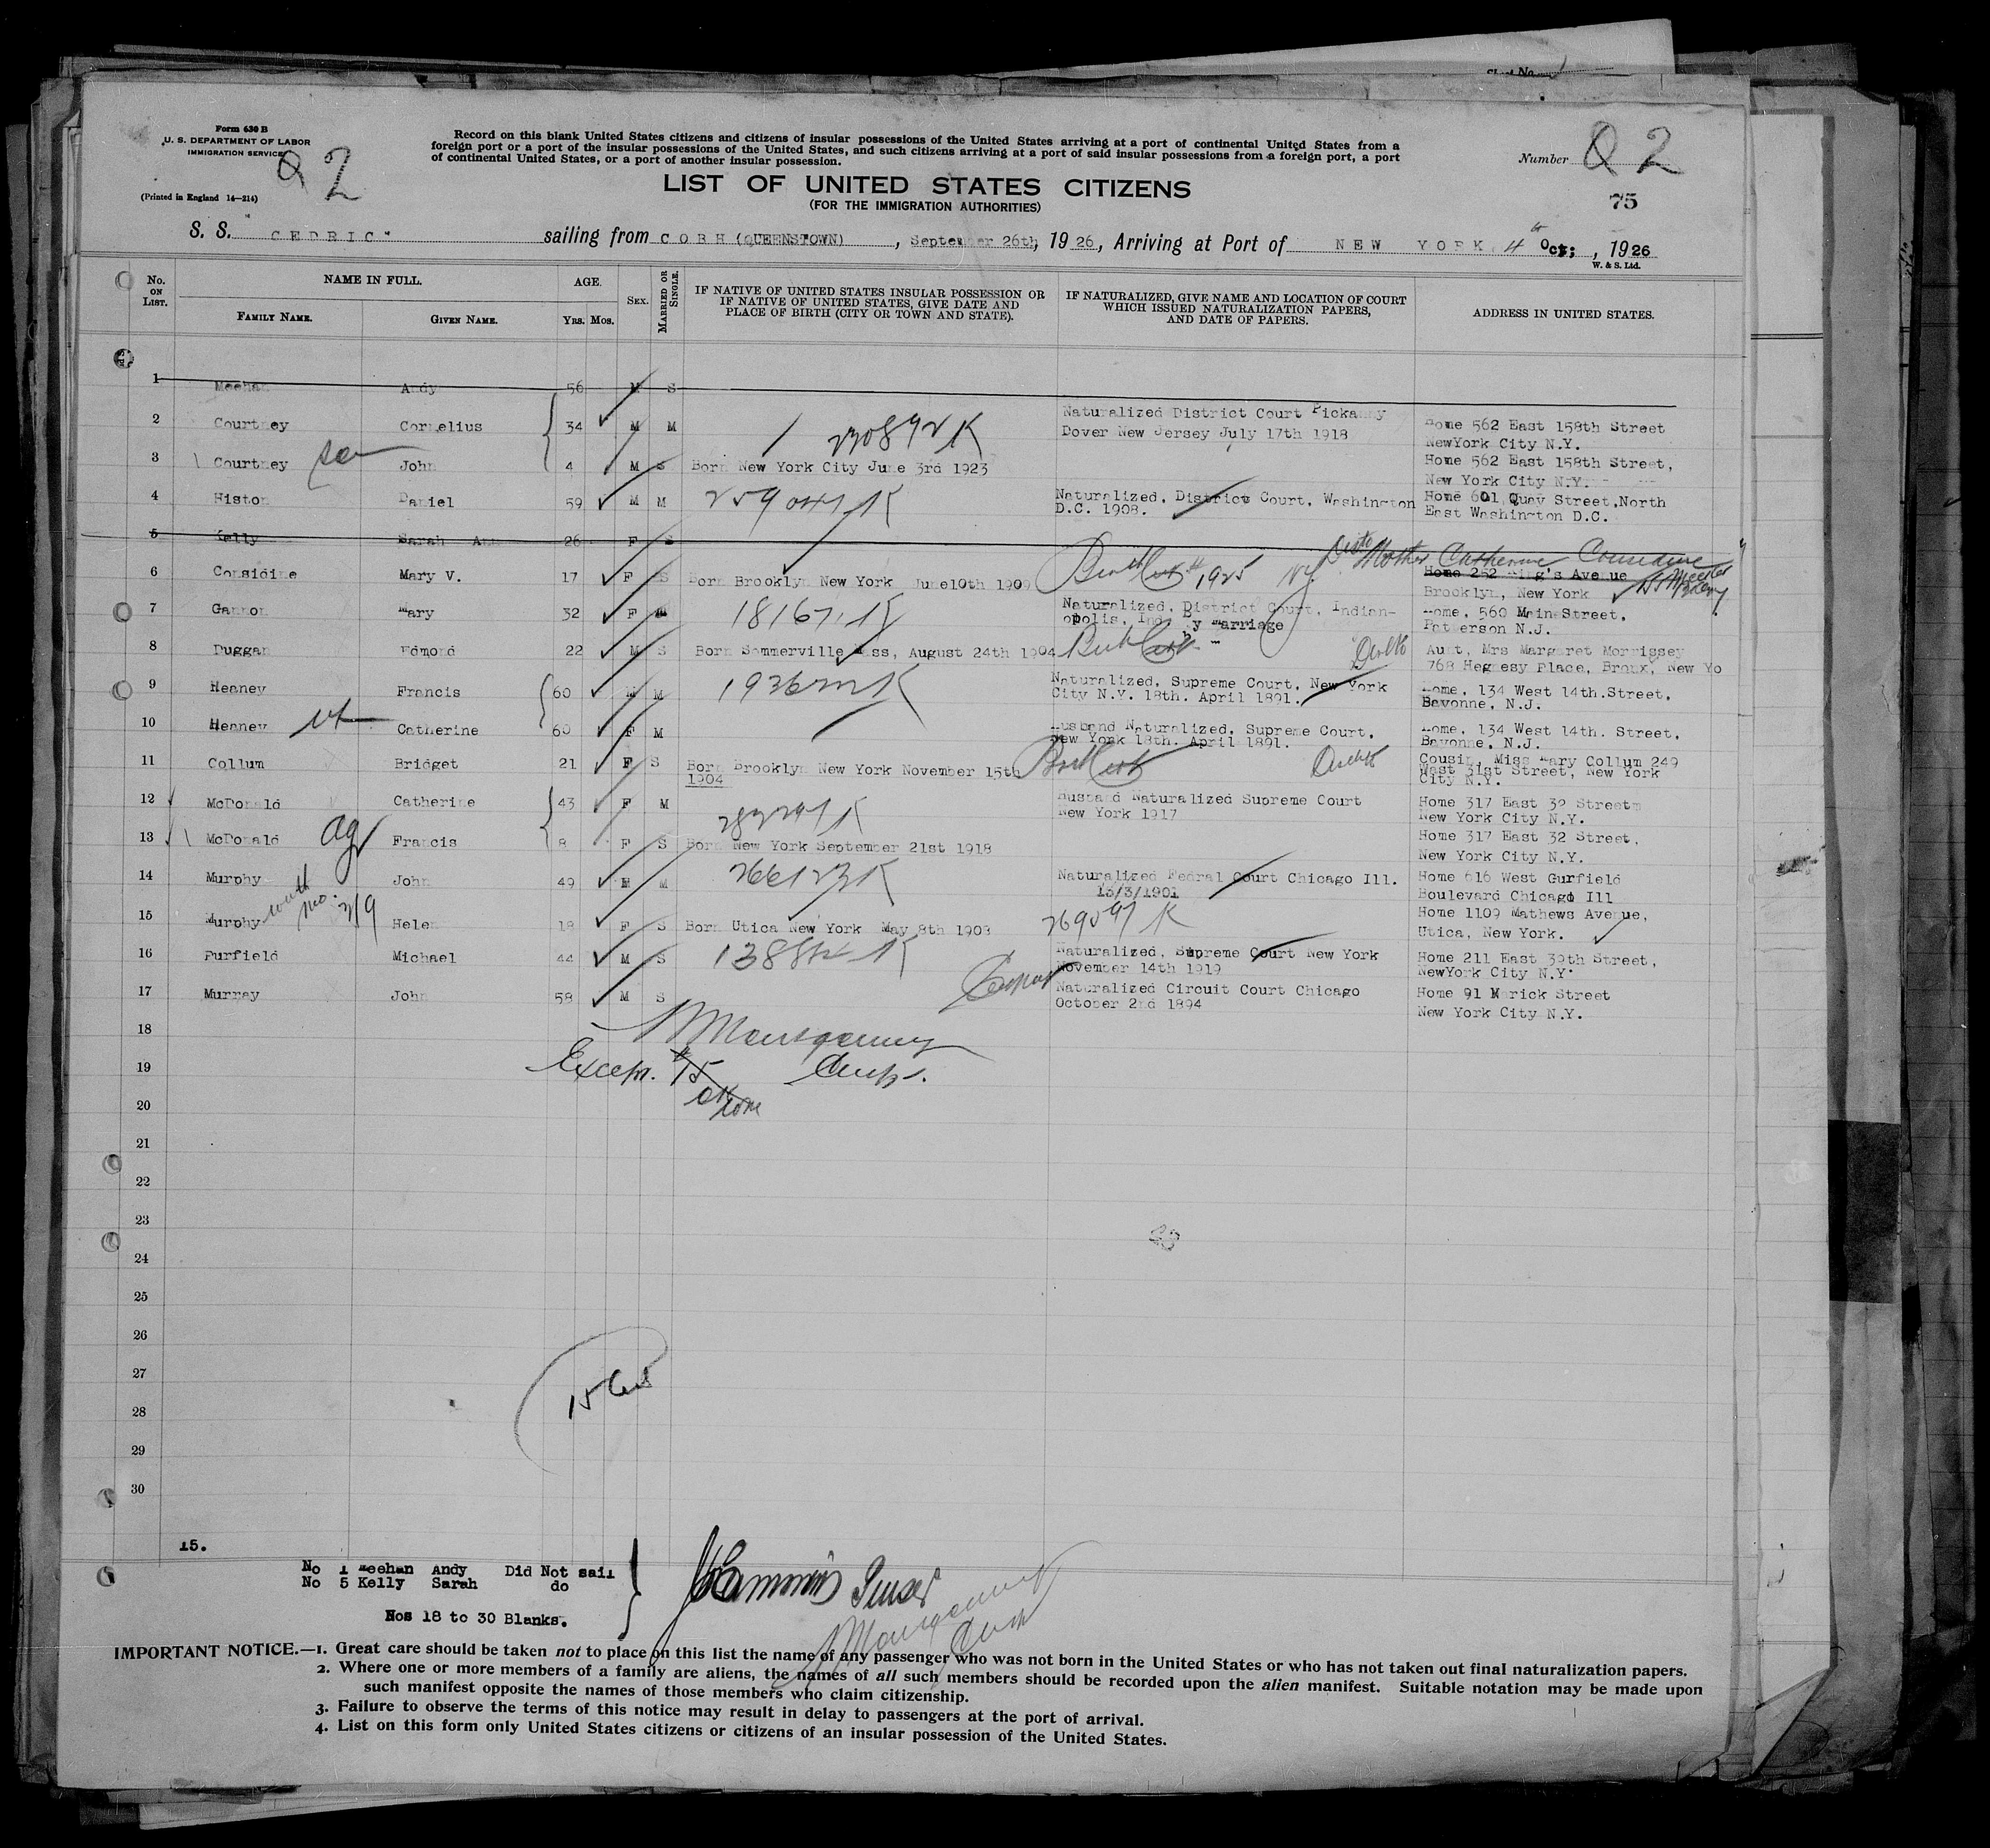 Form 630 B
U. S. DEPARTMENT OF LABOR
IMMIGRATION SERVICE
Q 2
(Printed in England 14—214)
Record on this blank United States citizens and citizens of insular possessions of the United States arriving at a port of continental United States from a
foreign port or a port of the insular possessions of the United States, and such citizens arriving at a port of said insular possessions from a foreign port, a port
of continental United States, or a port of another insular possession.
Number Q 2
LIST OF UNITED STATES CITIZENS
(FOR THE IMMIGRATION AUTHORITIES)
75
S. S. "CEDRIC" sailing from COBH (QUEENSTOWN), September 26th, 1926, Arriving at Port of NEW YORK 4th Oct; , 1926
W. & S. Ltd.
No. ON LIST.
NAME IN FULL.
FAMILY NAME. GIVEN NAME.
AGE.
YRS. MOS.
SEX.
MARRIED OR SINGLE.
IF NATIVE OF UNITED STATES INSULAR POSSESSION OR
IF NATIVE OF UNITED STATES, GIVE DATE AND
PLACE OF BIRTH (CITY OR TOWN AND STATE).
IF NATURALIZED, GIVE NAME AND LOCATION OF COURT
WHICH ISSUED NATURALIZATION PAPERS,
AND DATE OF PAPERS.
ADDRESS IN UNITED STATES.
1 Meehan Andy 56 M S
2 Courtney Cornelius 34 M M 230892K Naturalized District Court Pickanny
Dover New Jersey July 17th 1918
Home 562 East 158th Street
NewYork City N.Y.
3 Courtney son John 4 M S Born New York City June 3rd 1923 Home 562 East 158th Street,
New York City N.Y.
4 Histon Daniel 59 M M Naturalized, District Court, Washington
D.C. 1908.
Home 601 Quay Street,North
East Washington D.C.
5 Kelly Sarah Ann 26 F S
Mother Catherine Considine
6 Considine Mary V. 17 F S Born Brooklyn New York June10th 1909 Birth Cert 1925 NY
Home 252 King's Avenue
Brooklyn, New York
7 Gannon Mary 32 F M 18167 K Naturalized, District Court, Indian-
opolis, Ind by marriage
Home, 560 Main Street,
Patterson N.J.
8 Duggan Edmond 22 M S Born Sommerville Mass, August 24th 1904 Birth Cert
Aunt, Mrs Margaret Morrissey
768 Hegnesy Place, Bronx, New Yo
9 Heaney Francis 60 M M Naturalized, Supreme Court, New York
City N.Y. 18th. April 1891.
Home, 134 West 14th.Street,
Bayonne, N.J.
10 Heaney Catherine 60 F M Husband Naturalized, Supreme Court,
New York 18th. April 1891.
Home, 134 West 14th. Street,
Bayonne, N.J.
11 Collum Bridget 21 F S Born Brooklyn New York November 15th
1904
Birth Cert
Cousin, Miss Mary Collum 249
West 31st Street, New York
City N.Y.
12 McDonald Catherine 43 F M Husband Naturalized Supreme Court
New York 1917
Home 317 East 32 Streetm
New York City N.Y.
13 McDonald Francis 8 F S Born New York September 21st 1918
Home 317 East 32 Street,
New York City N.Y.
14 Murphy John 49 M M 266123K Naturalized Fedral Court Chicago Ill.
13/3/1901
Home 616 West Gurfield
Boulevard Chicago Ill
15 Murphy Helen 18 F S Born Utica New York May 8th 1908 269097 K
Home 1109 Mathews Avenue,
Utica, New York.
16 Purfield Michael 44 M S Naturalized, Supreme Court New York
November 14th 1919
Home 211 East 39th Street,
NewYork City N.Y.
17 Murray John 58 M S Naturalized Circuit Court Chicago
October 2nd 1894
Home 91 Merick Street
New York City N.Y.
18
Montgomery
19 Except #15 Insp.
20 OK
21
22
23
24
25
26
27
28
29
30
15.
No 1 Meehan Andy Did Not sail
No 5 Kelly Sarah do
Nos 18 to 30 Blanks.
IMPORTANT NOTICE.—1. Great care should be taken not to place on this list the name of any passenger who was not born in the United States or who has not taken out final naturalization papers.
2. Where one or more members of a family are aliens, the names of all such members should be recorded upon the alien manifest. Suitable notation may be made upon
such manifest opposite the names of those members who claim citizenship.
3. Failure to observe the terms of this notice may result in delay to passengers at the port of arrival.
4. List on this form only United States citizens or citizens of an insular possession of the United States.